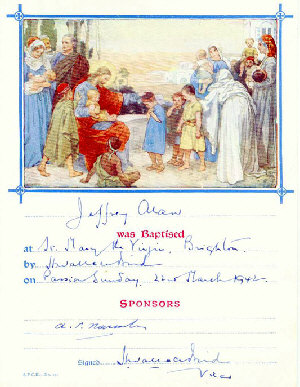 Jeffrey Alan
was Baptised
at St. Mary the Virgin, Brighton
by
on Passion Sunday, 22nd March 1942.
SPONSORS
Signed
Vicar